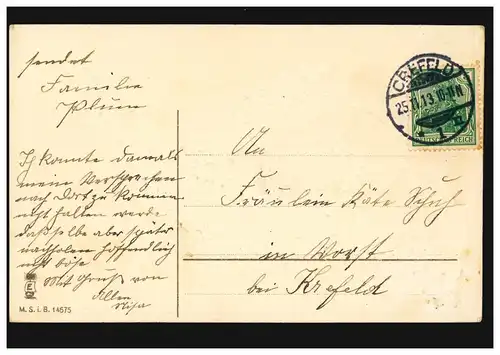 sendet
Familie
Plüm
Ich konnte damals
mein Versprechen
nach dort zu kommen
nicht halten werde
dasselbe aber später
nachholen hoffendlich
nicht böse
Mit Gruß von
Allen
M.S.i.B. 14575
CREFELD
25.11.13.10-11N
1
DEUTSCHES REICH
An
Fräulein Käte Schuh
in Vorst
bei Krefeld